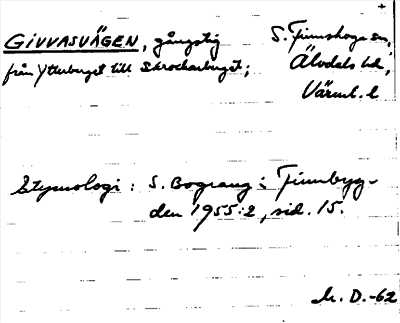 GIVVASVÄGEN, gångstig S. Finnskoga sn,
från Ytterberget till Skrockarberget; Älvdals hd,
Värml. l
Etymologi: S. Bograng i Finnbyg-
den 1955:2, sid. 15.
M. D. -62